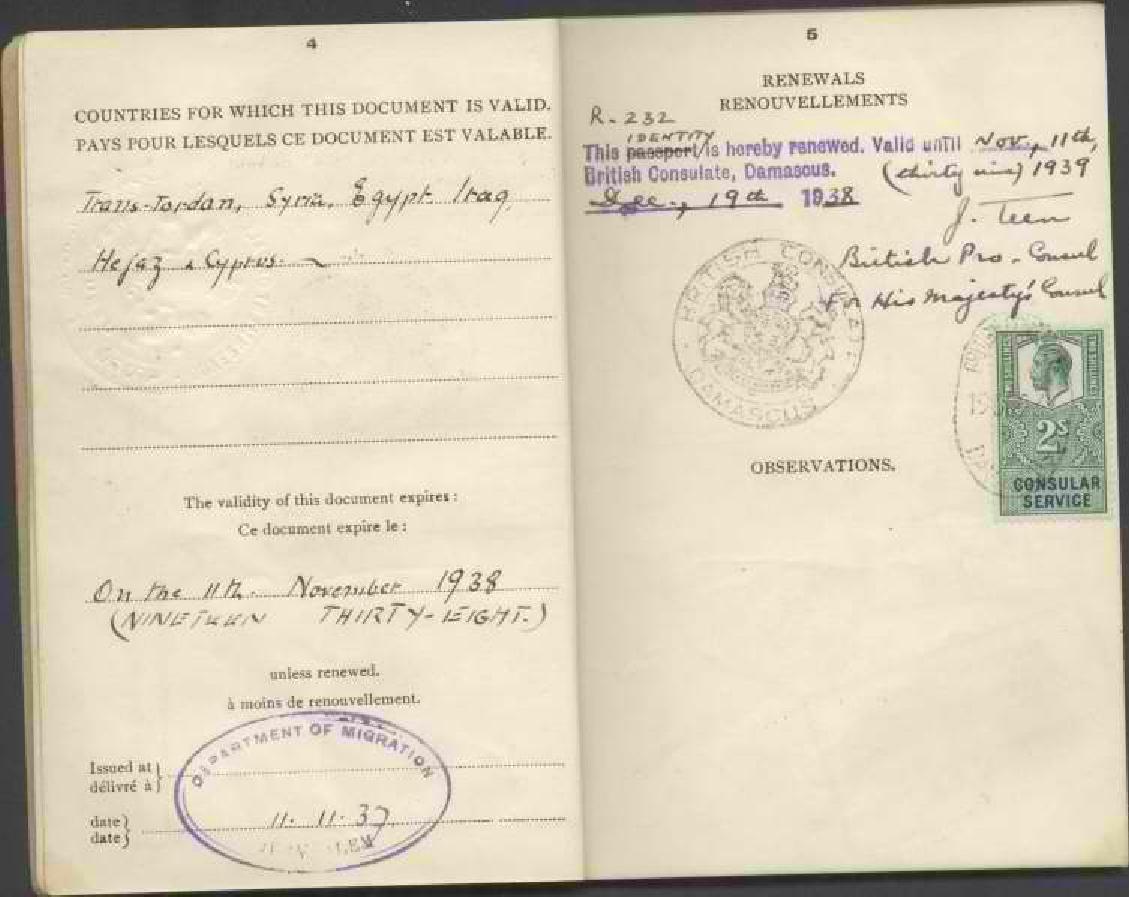 4
COUNTRIES FOR WHICH THIS DOCUMENT IS VALID.
PAYS POUR LESQUELS CE DOCUMENT EST VALABLE.
Trans-Jordan, Syria, Egypt, Iraq,
Hejaz & Cyprus.
The validity of this document expires :
Ce document expire le :
On the 11th. November 1938
(NINETEEN THIRTY-EIGHT.)
unless renewed.
à moins de renouvellement.
DEPARTMENT OF MIGRATION
Issued at
délivré à
11. 11. 37
date
date
5
RENEWALS
RENOUVELLEMENTS
R. 232
IDENTITY
This passport is hereby renewed. Valid until Nov., 11th,
British Consulate, Damascus. (thirty nine) 1939
Dec., 19th 1938
J. Teen
British Pro-Consul
For His Majesty's Consul
BRITISH CONSULATE
DAMASCUS
TWO SHILLINGS
TWO SHILLINGS
2S
CONSULAR
SERVICE
OBSERVATIONS.